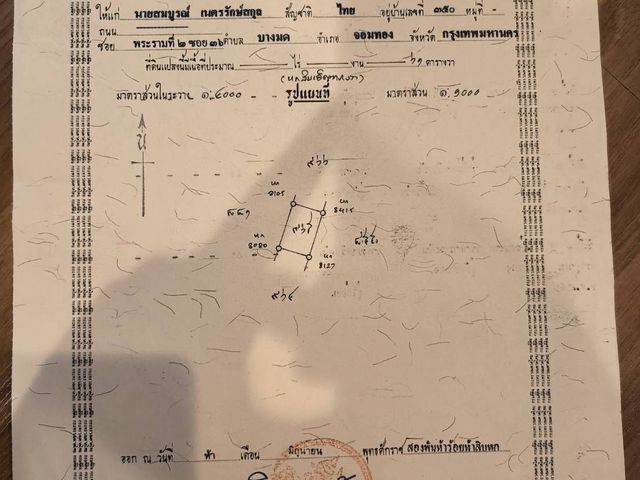 ให้แก่ นายสมบูรณ์ เนตรรักษ์สกุล สัญชาติ ไทย อยู่บ้านเลขที่ ๓๕๐ หมู่ที่ -
ถนน
ซอย พระรามที่ ๒ ซอย ๓๖ ตำบล บางมด อำเภอ จอมทอง จังหวัด กรุงเทพมหานคร
ที่ดินแปลงนี้มีเนื้อที่ประมาณ ไร่ งาน ตารางวา
มาตราส่วนในระวาง ๑:๔๐๐๐ รูปแผนที่ มาตราส่วน ๑:๑๐๐๐
น
8105
8415
8080
8127
ออก ณ วันที่ ห้า เดือน มิถุนายน พุทธศักราช สองพันห้าร้อยห้าสิบหก